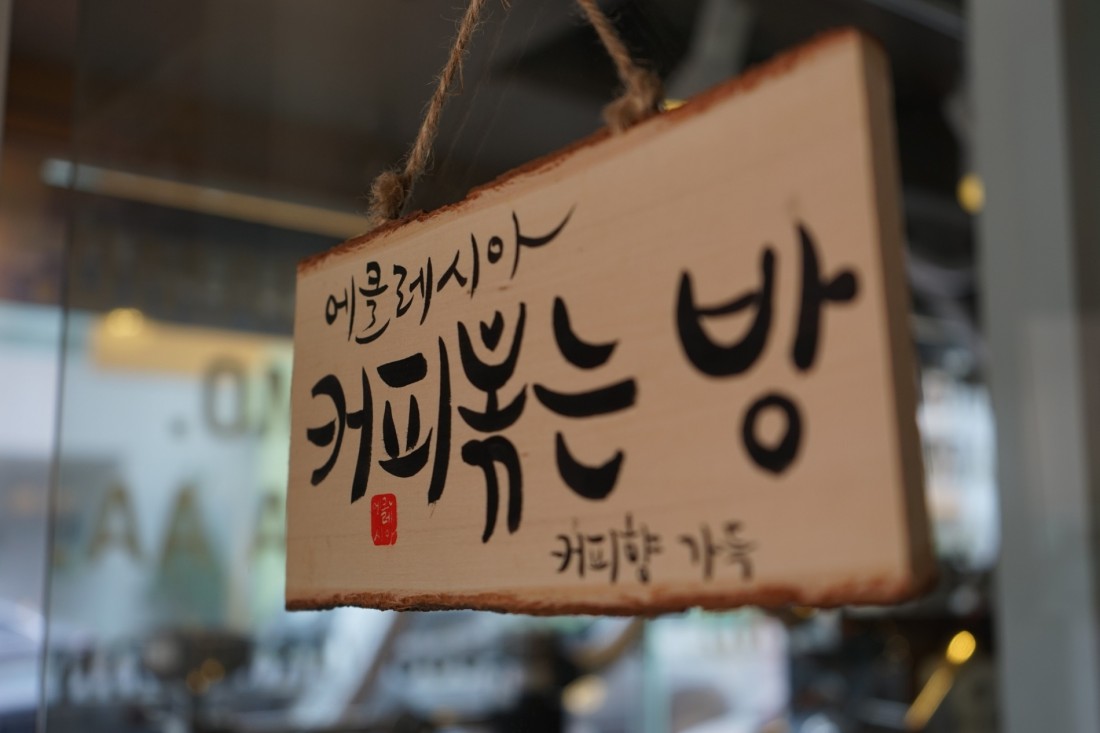 에클레시아
커피볶는 방
커피향 가득